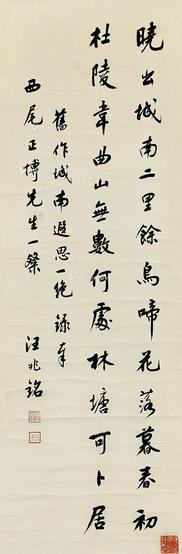 曉出城南二里餘鳥啼花落暮春初
杜陵韋曲山無數何處林塘可卜居
舊作城南遐思一絕錄奉
西尾正博先生一粲
汪兆銘